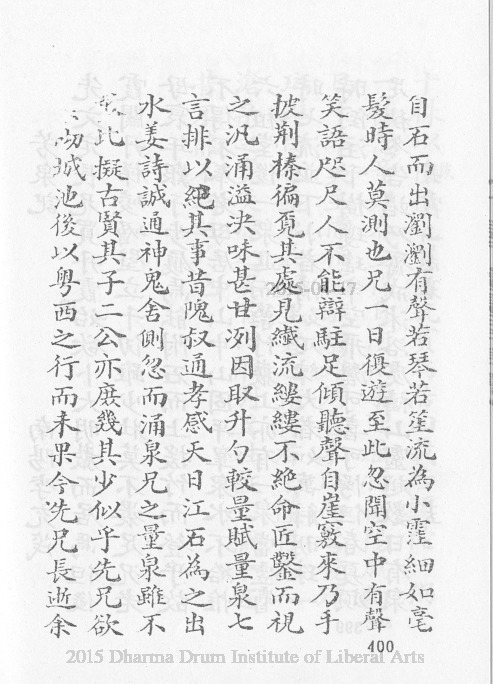 自石而出瀏瀏有聲若琴若笙流為小窪細如毫
髮時人莫測也兄一日復遊至此忽聞空中有聲
笑語咫尺人不能辯駐足傾聽聲自崖竅來乃手
披荆榛徧覓其處見纎流縷縷不絕命匠鑿而視
之汎涌溢决味甚甘冽因取升勺較量賦量泉七
言排以絕其事昔隗叔通孝感天日江石為之出
水姜詩誠通神鬼舍側忽而涌泉兄之量泉雖不
比擬古賢其子二公亦庶幾其少似乎先兄欲
城池後以粤西之行而未果今先兄長逝余
400
2015 Dharma Drum Institute of Liberal Arts